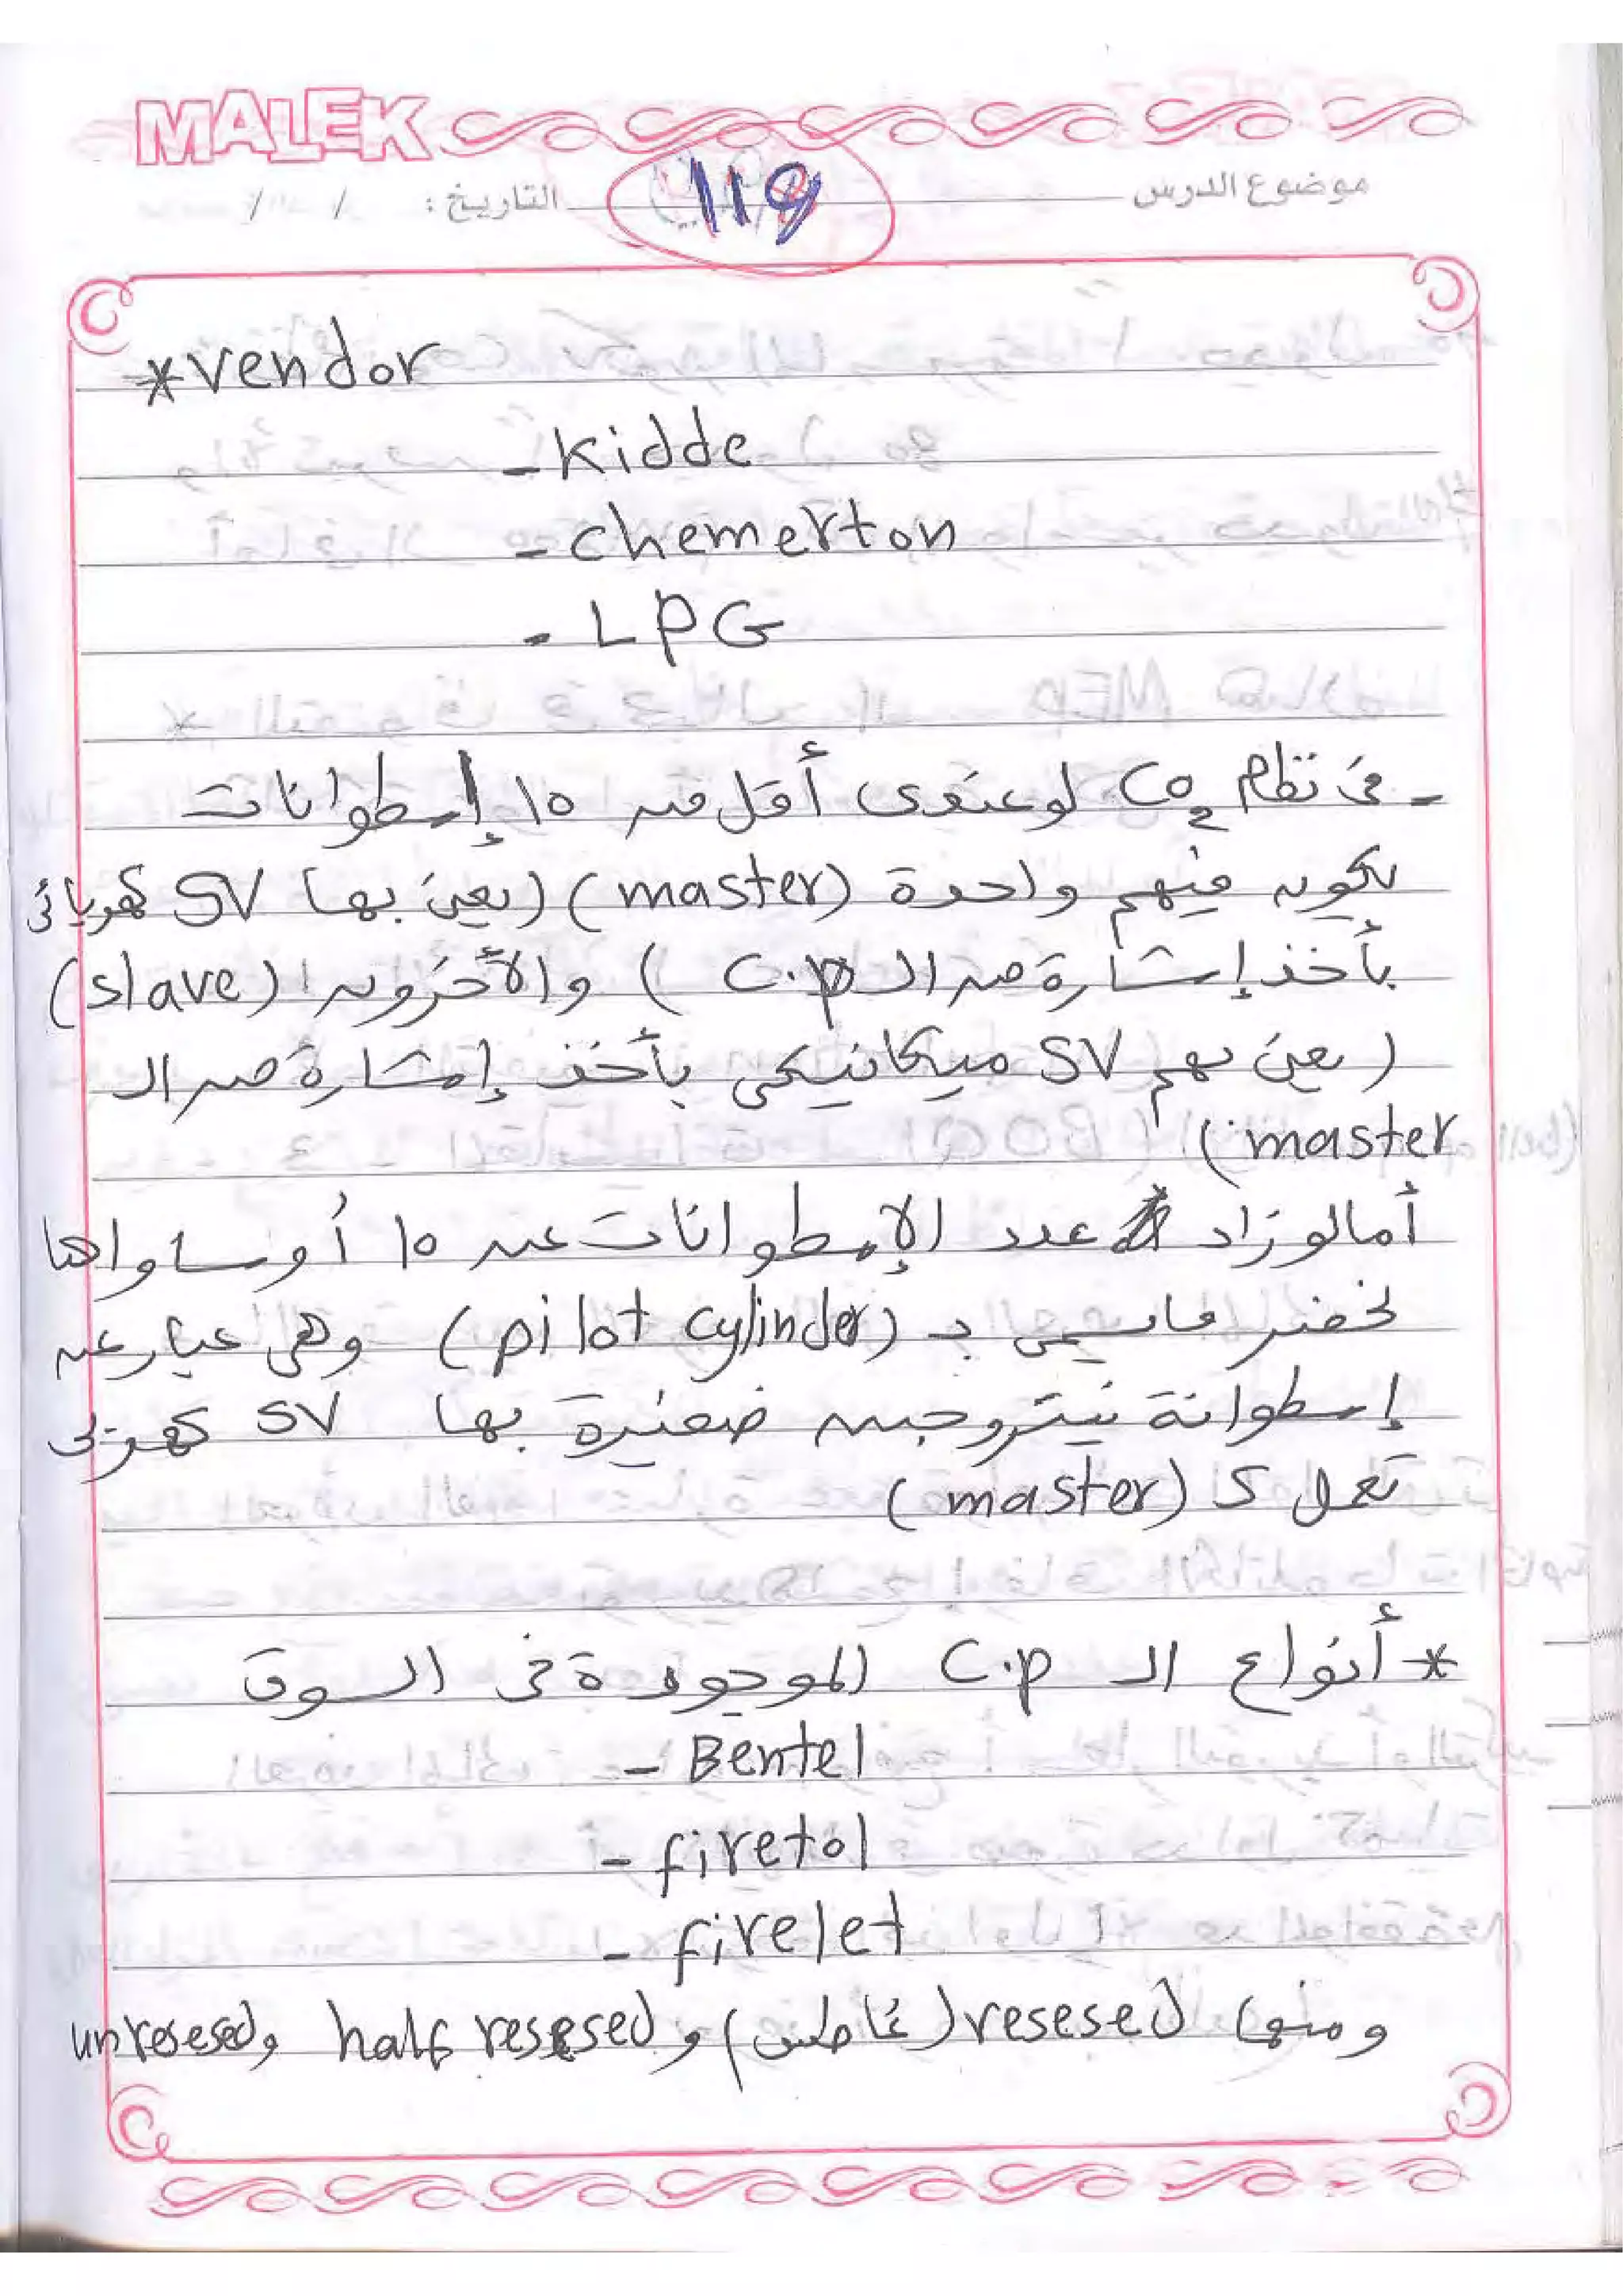 MALEK
موضوع الدرس
119
التاريخ: / /
* vendor
- Kidde
- chemerton
- LPG
- فى نظام CO2 لو عندى أقل من 10 إسطوانات
يكون منهم واحدة (master) (يعنى بها SV كهربائى
بأخذ إشارة من الـ C.p) والأخرون (slave)
(يعنى بهم SV ميكانيكى بأخذ إشارة من الـ
master)
أما لو زاد عدد الإسطوانات عن 10 أو ساواها
نحضر مايسمى بـ (pilot cylinder) وهى عبار عن
إسطوانة نيتروجين صغيرة بها SV كهربى
تعمل كـ (master)
* أنواع الـ C.p الموجودة فى السوق
- Bentel
- firetol
- firelet
ومنها resesed (غاطس) و half resesed و unresesed